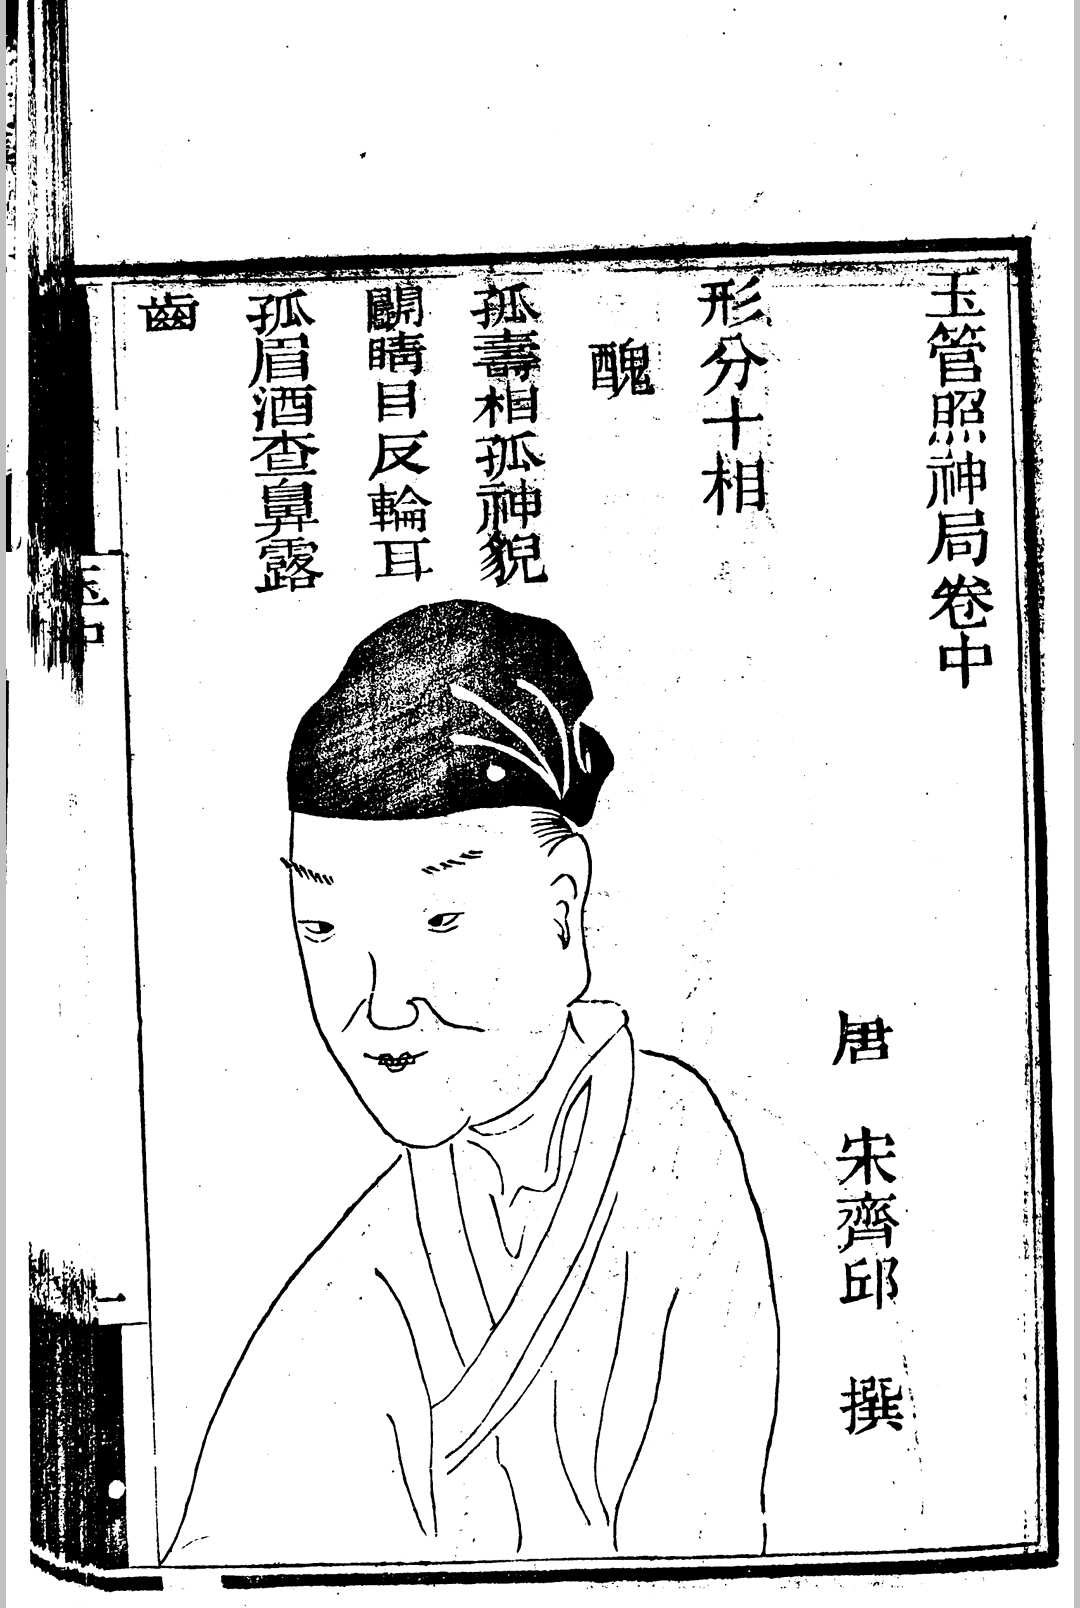 玉管照神局卷中
唐 宋齊邱 撰
形分十相
醜
孤壽相孤神貌
鬭睛目反輪耳
孤眉酒查鼻露
齒
玉中
一